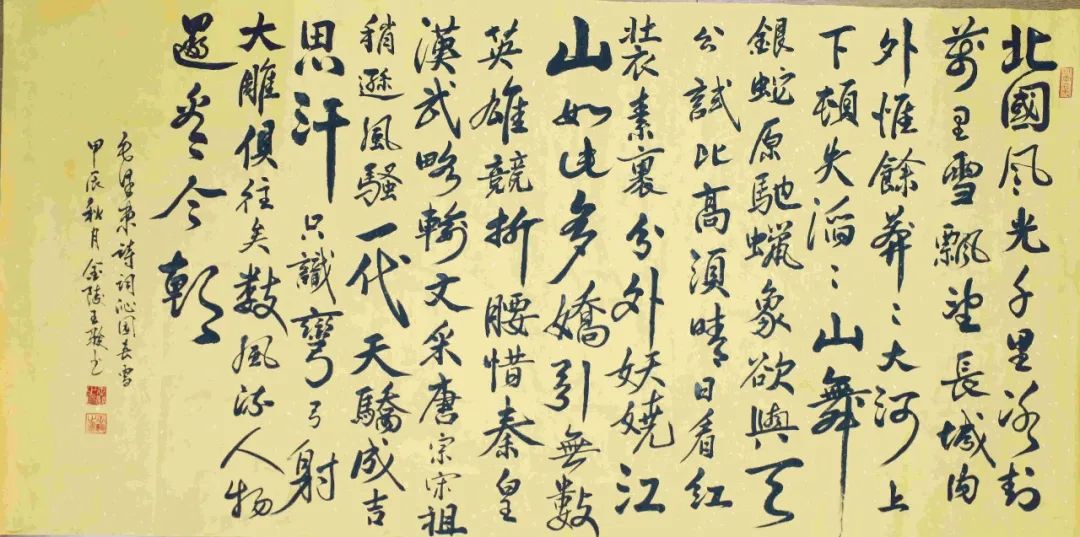 北國风光千里冰封
萬里雪飄望長城内
外惟餘莽〻大河上
下頓失滔〻山舞
銀蛇原馳蠟象欲與天
公試比高須晴日看紅
裝素裹分外妖嬈江
山如此多嬌引無數
英雄競折腰惜秦皇
漢武略輸文采唐宗宋祖
稍遜風騷一代天驕成吉
思汗只識彎弓射
大雕俱往矣數風流人物
還看今朝
毛澤東詩詞沁園春雪
甲辰秋月金陵王書